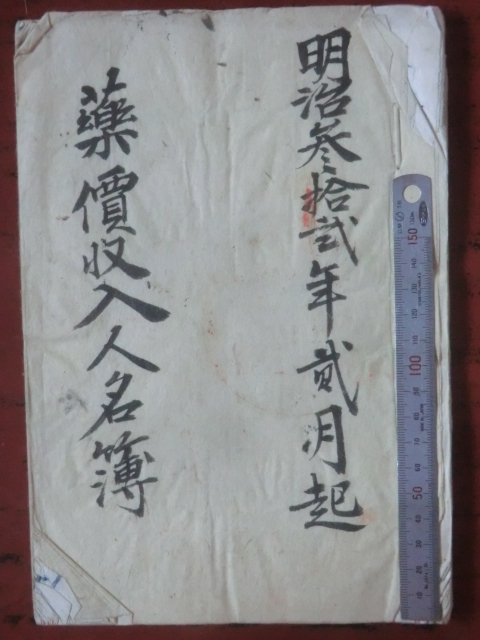 明治叁拾弐年貮月起
藥價収入人名簿
150
100
50